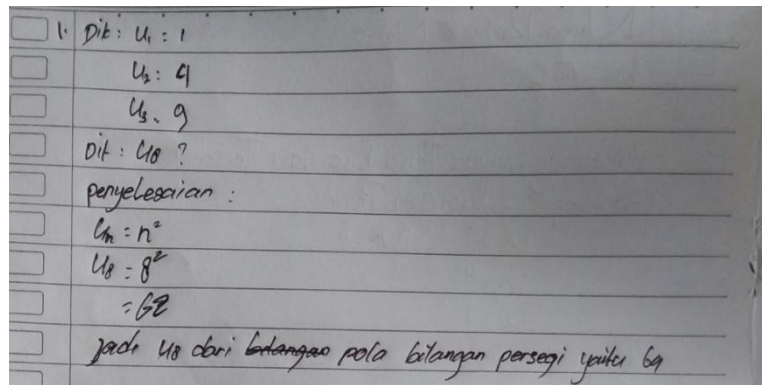 1. Dik : U₁ : 1
U₂ : 4
U₃ . 9
Dit : U8 ?
penyelesaian :
Un = n²
U8 = 8²
= 64
jadi U8 dari bilangan pola bilangan persegi yaitu 64